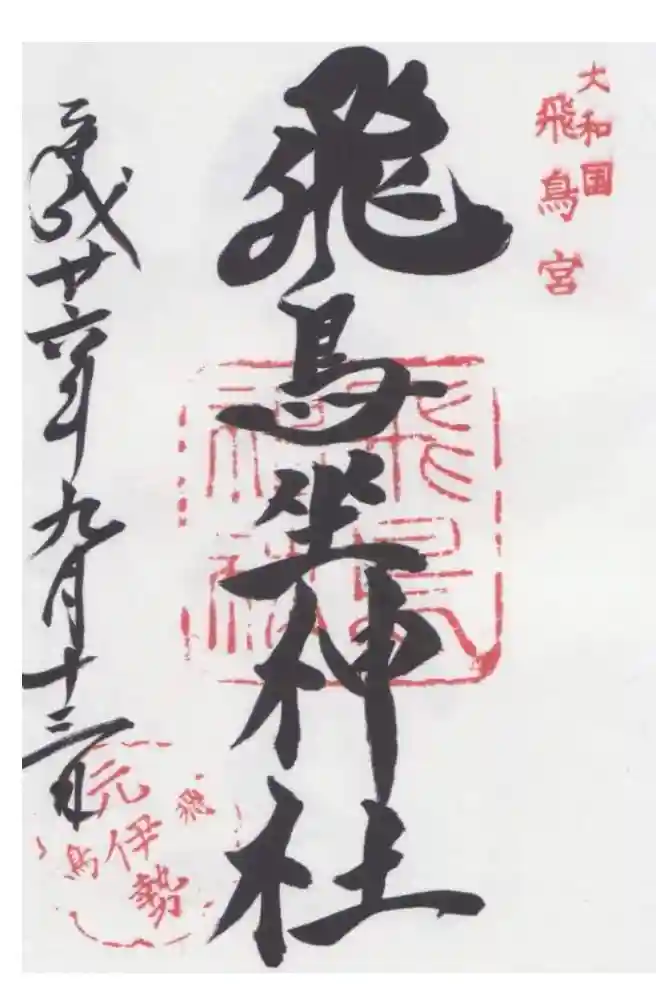 大和国
飛鳥宮
飛鳥坐神社
飛鳥
神社
平成廿六年九月十三日
元伊勢
飛鳥